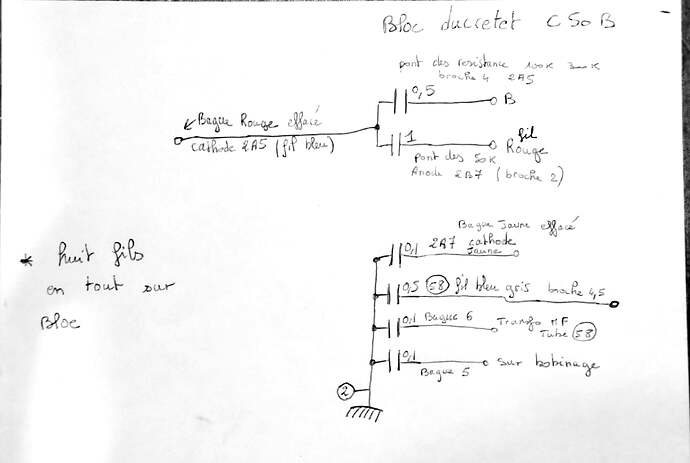 Bloc ducretet C50B
pont des resistance 100K
broche 4 2A5
0,5
B
Bague Rouge effacé
cathode 2A5 (fil bleu)
1
fil
Rouge
pont des 50K
Anode 2B7 (broche 2)
Bague Jaune effacé
0,1 2A7 cathode
Jaune
0,5 58 fil bleu gris broche 4,5
0,1 Bague 6 Transfo MF
Tube 58
0,1 sur bobinage
Bague 5
2
* huit fils
en tout sur
Bloc